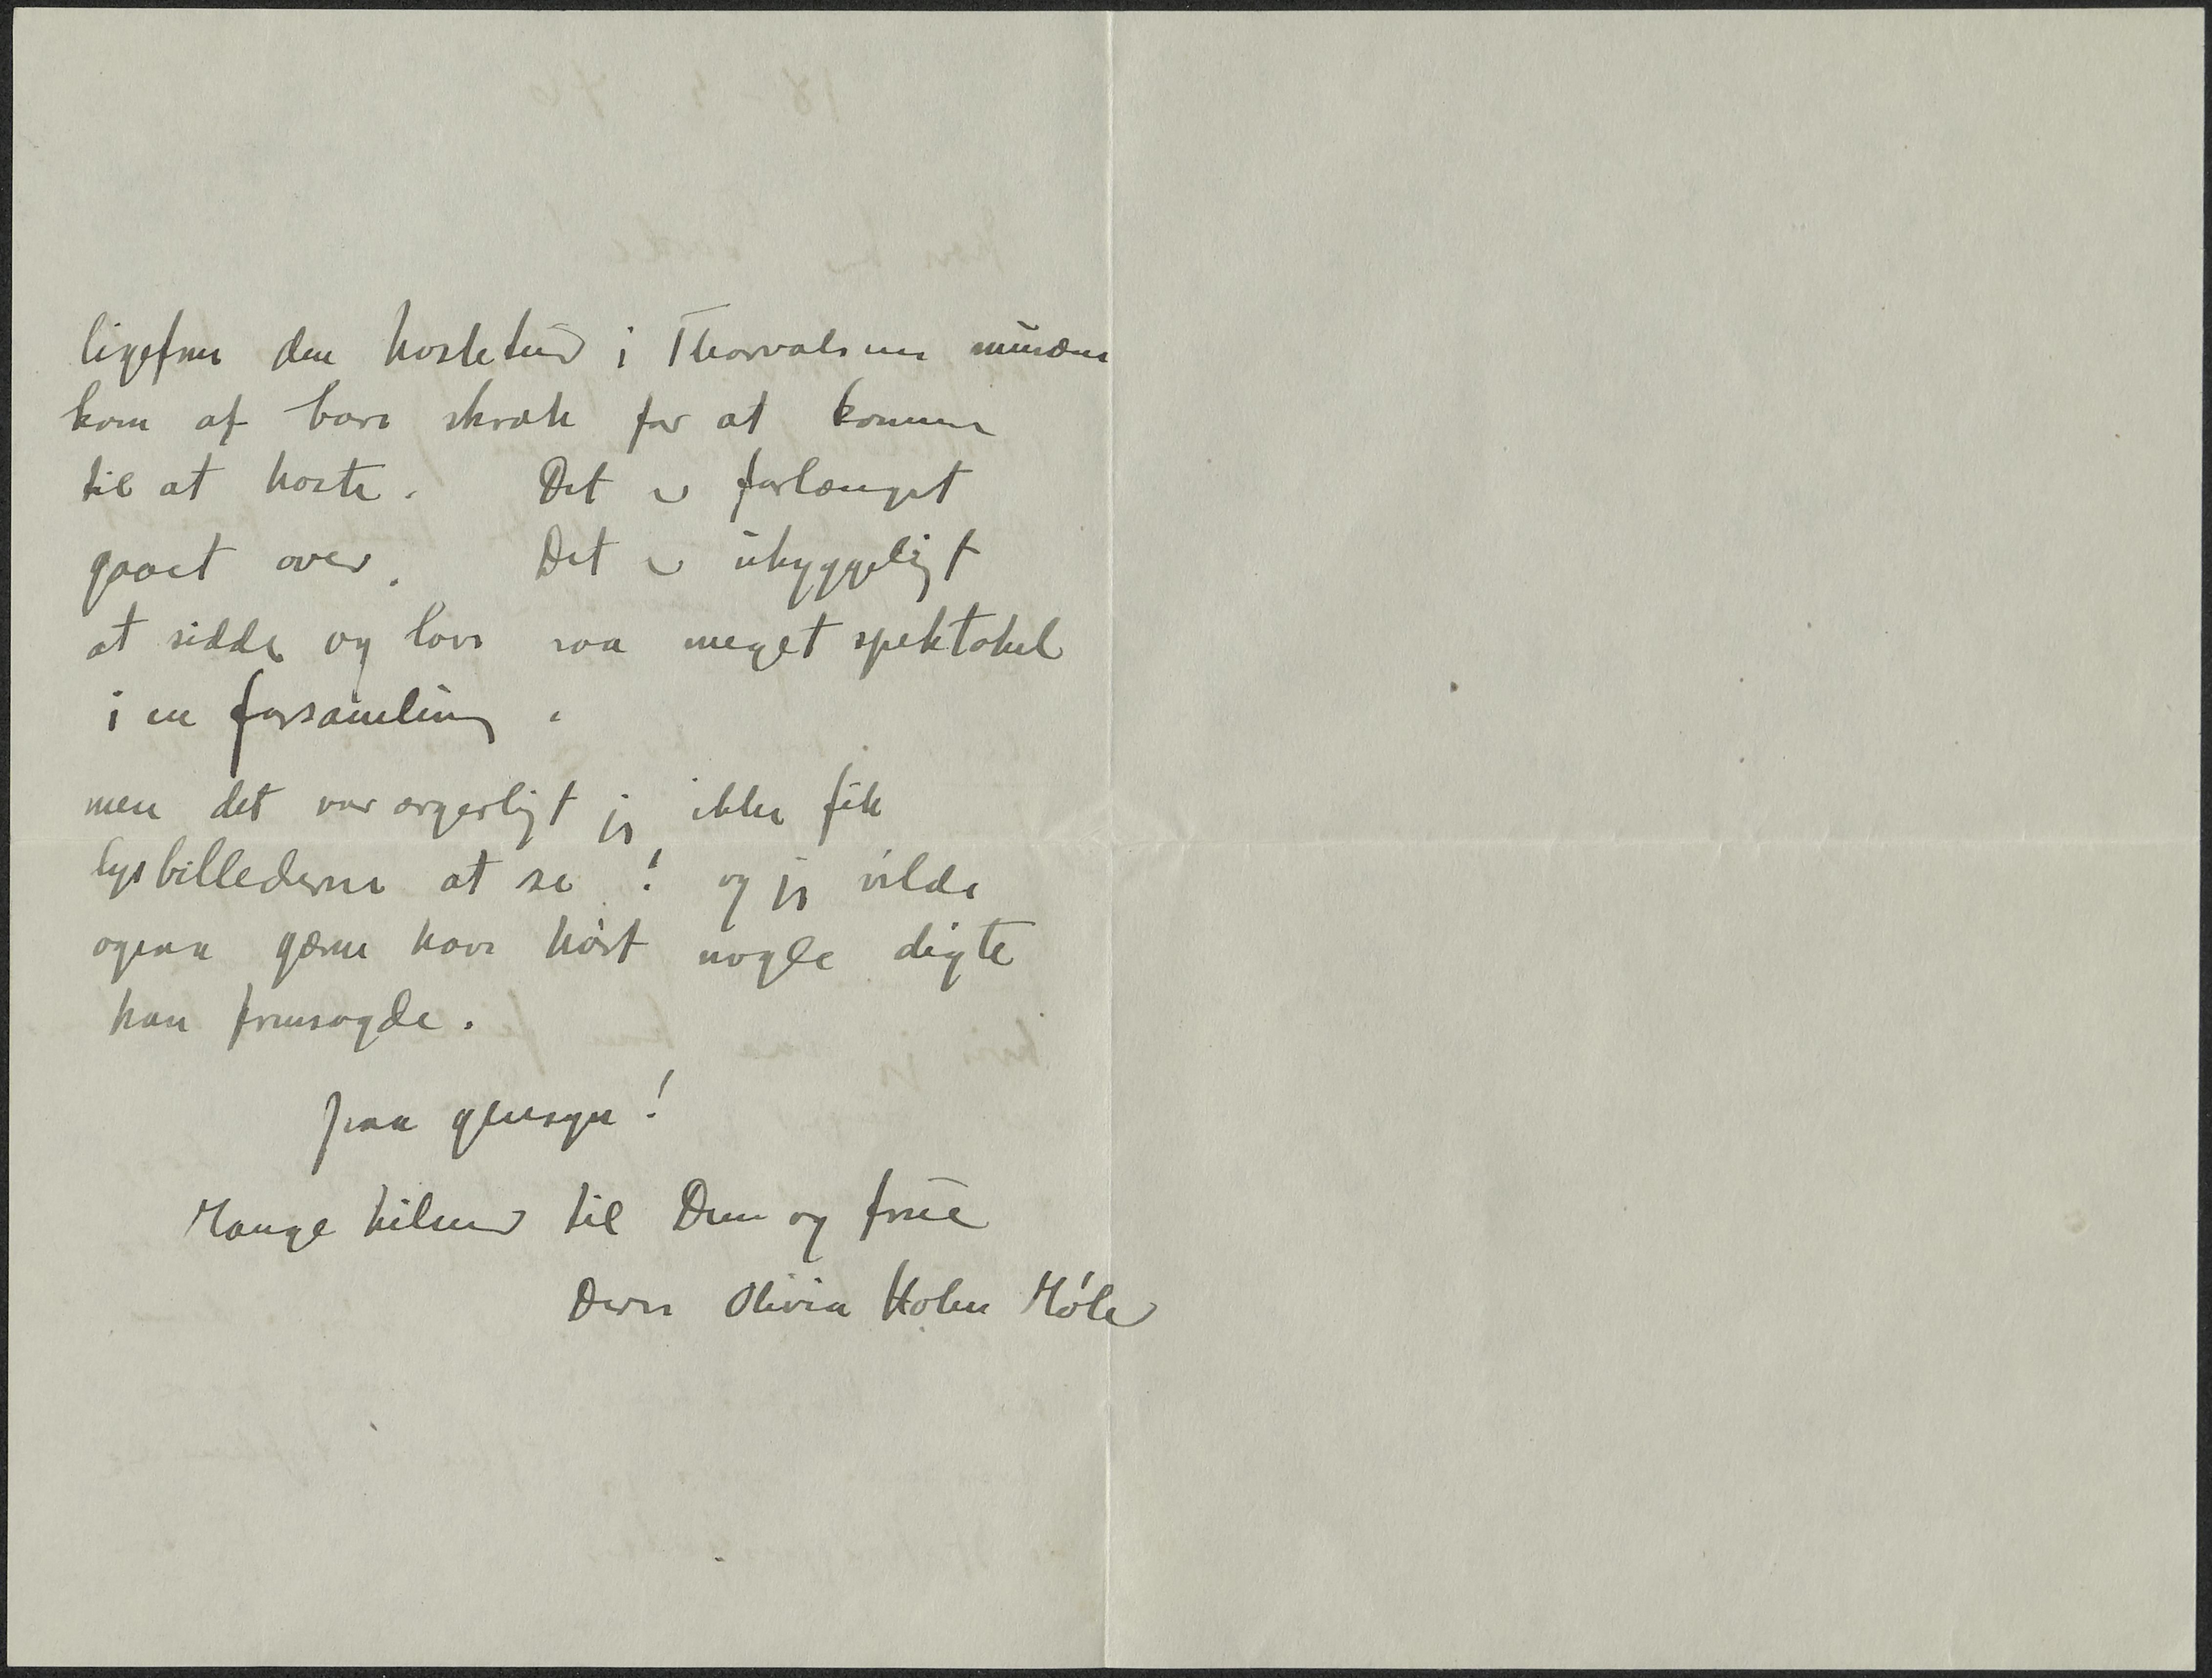 ligefrem den hostetur i Thorvalsens musæum
kom af bare skræk for at komme
til at hoste. Det er forlænget
gaaet over. Det er uhyggeligt
at sidde og lave saa meget spektakel
i en forsamling.
men det var ærgerligt jeg ikke fik
lysbillederne at se! og jeg vilde
ogsaa gærne have hørt nogle digte
han fremsagde.
paa gensyn!
Mange hilsner til Dem og frue
Deres Olivia Holm Møller